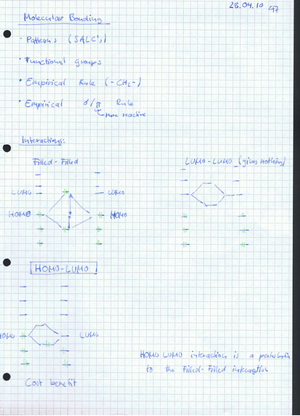 28.04.10
Molecular Bonding
• Patterns (SALC's)
• Functional groups
• Empirical Rule (-CH₂-)
• Empirical Rule
Interacting:
Filled-Filled
LUMO-LUMO (gives nothing)
LUMO LUMO
HOMO HOMO
HOMO-LUMO
HOMO LUMO
HOMO LUMO interaction is a
to the Filled-Filled interaction
Cost benefit